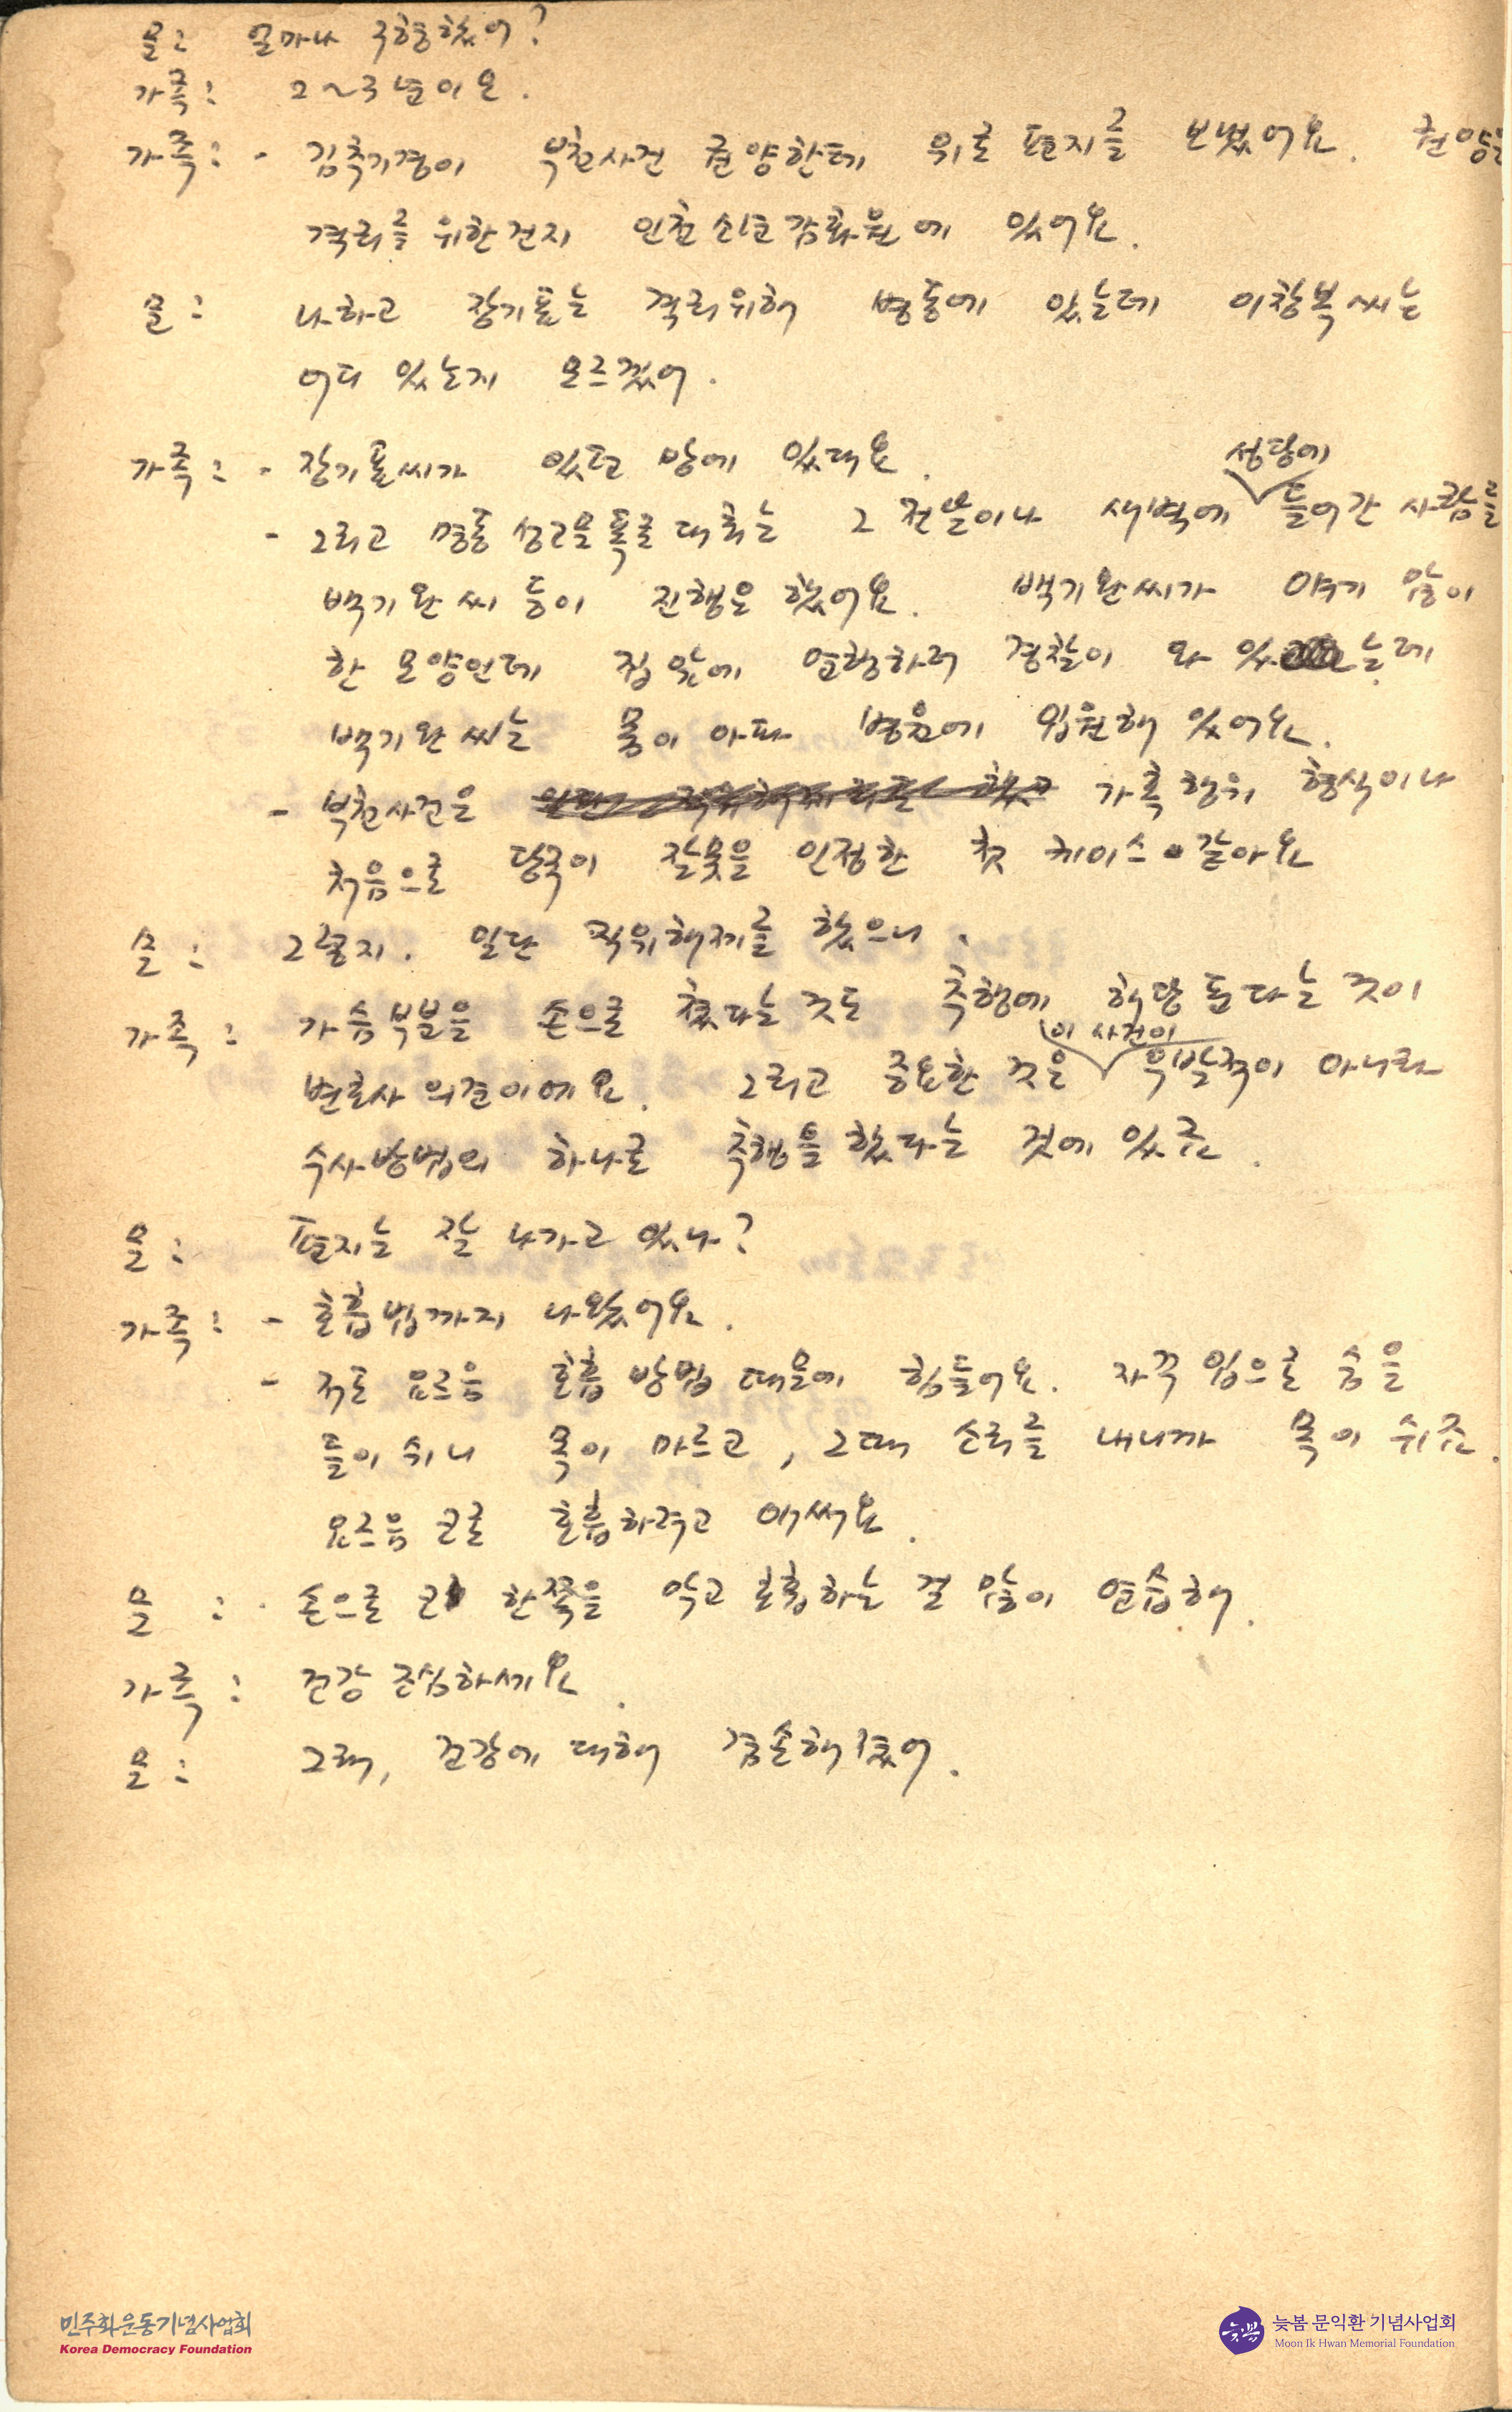 문: 얼마나 구형했어?
가족: 2~3년이요.
가족: - 김추기경이 부천사건 권양한테 위로 편지를 보냈어요. 권양은
격리를 위한건지 인천 소년 감화원에 있어요.
문: 나하고 장기표는 격리위해 병동에 있는데 이창복씨는
어디 있는지 모르겠어.
가족: - 장기표씨가 있던 방에 있대요.
성당에
- 그리고 명동 성고문 폭로 대회는 그 전날이나 새벽에 들어간 사람들
백기완씨 등이 진행을 했어요. 백기완씨가 얘기 많이
한 모양인데 집앞에 연행하러 경찰이 와 있는데
백기완씨는 몸이 아파 병원에 입원해 있어요.
- 부천사건은 가혹행위 형식이나
처음으로 당국이 잘못을 인정한 첫 케이스 같아요
문: 그렇지. 일단 직위해제를 했으니.
가족: 가슴부분을 손으로 쳤다는 것도 추행에 해당된다는 것이
이 사건이
변호사 의견이에요. 그리고 중요한 것은 우발적이 아니라
수사방법의 하나로 추행을 했다는 것에 있죠.
문: 편지는 잘 나가고 있나?
가족: - 호흡법까지 나왔어요.
- 저도 요즈음 호흡 방법 때문에 힘들어요. 자꾹 입으로 숨을
들이 쉬니 목이 마르고, 그때 소리를 내니까 목이 쉬죠.
요즈음 코로 호흡하려고 애써요.
문: 손으로 코 한쪽을 막고 호흡하는 걸 많이 연습해.
가족: 건강 조심하세요.
문: 그래, 건강에 대해 겸손해졌어.
민주화운동기념사업회
Korea Democracy Foundation
늦봄
늦봄 문익환 기념사업회
Moon Ik Hwan Memorial Foundation